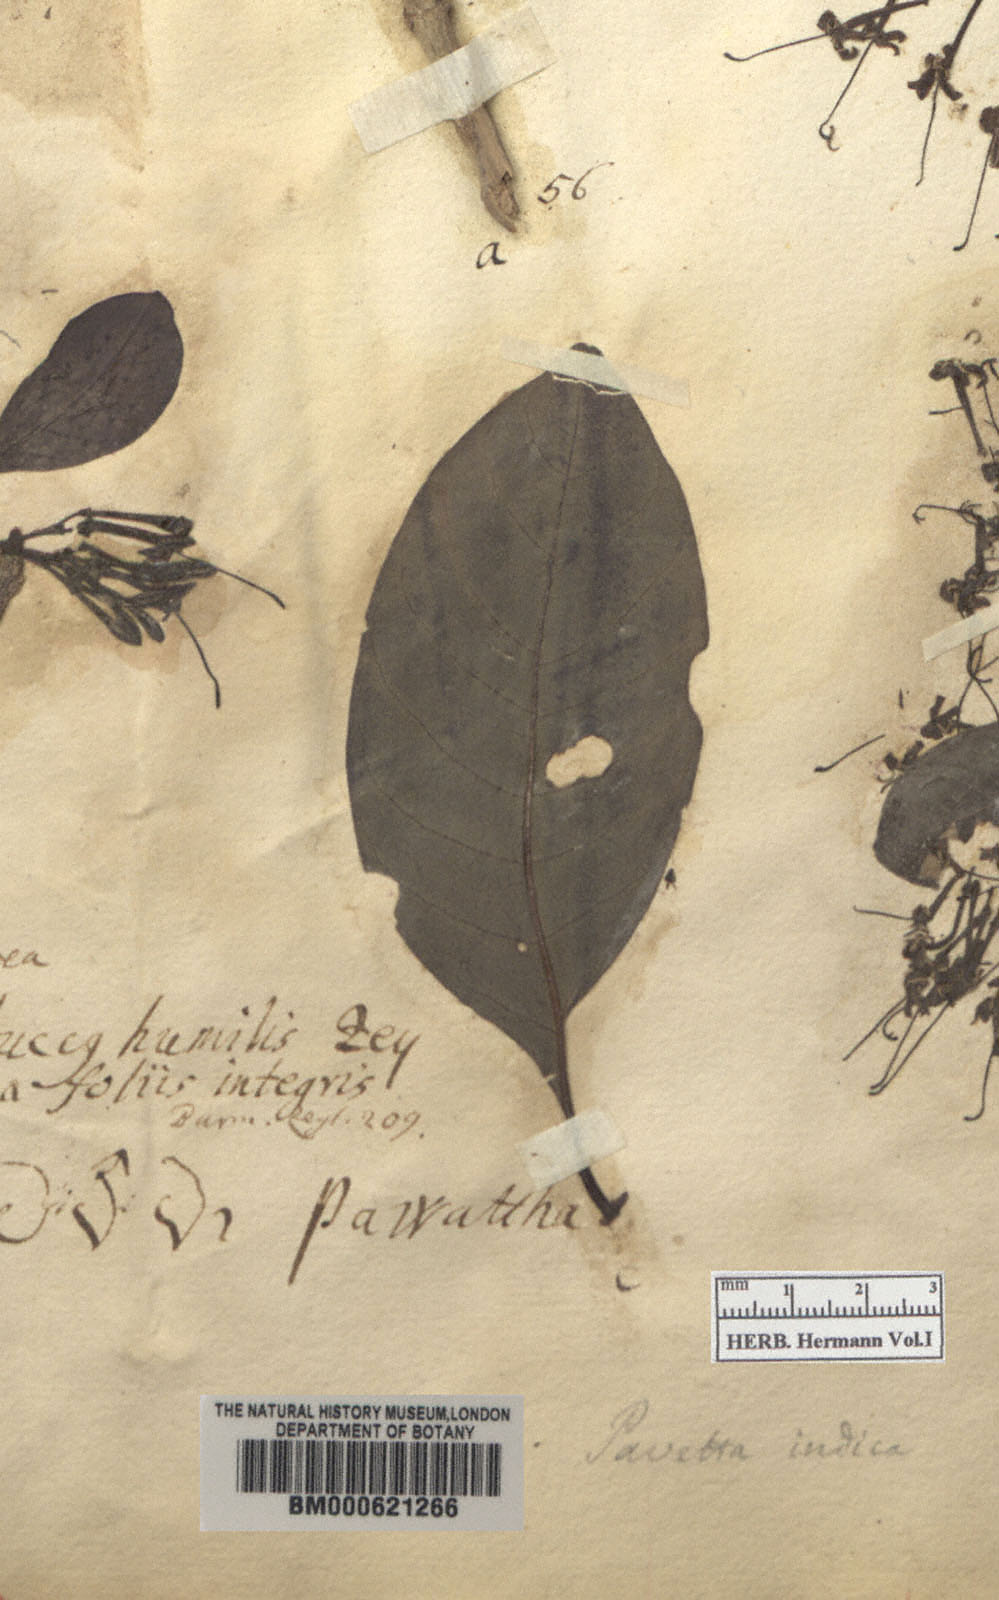 56
a
humilis Zey
a foliis integris
Burm. Zeyl. 209.
Pawattha
c
mm 1 2 3
HERB. Hermann Vol.I
THE NATURAL HISTORY MUSEUM, LONDON
DEPARTMENT OF BOTANY
BM000621266
Pavetta indica